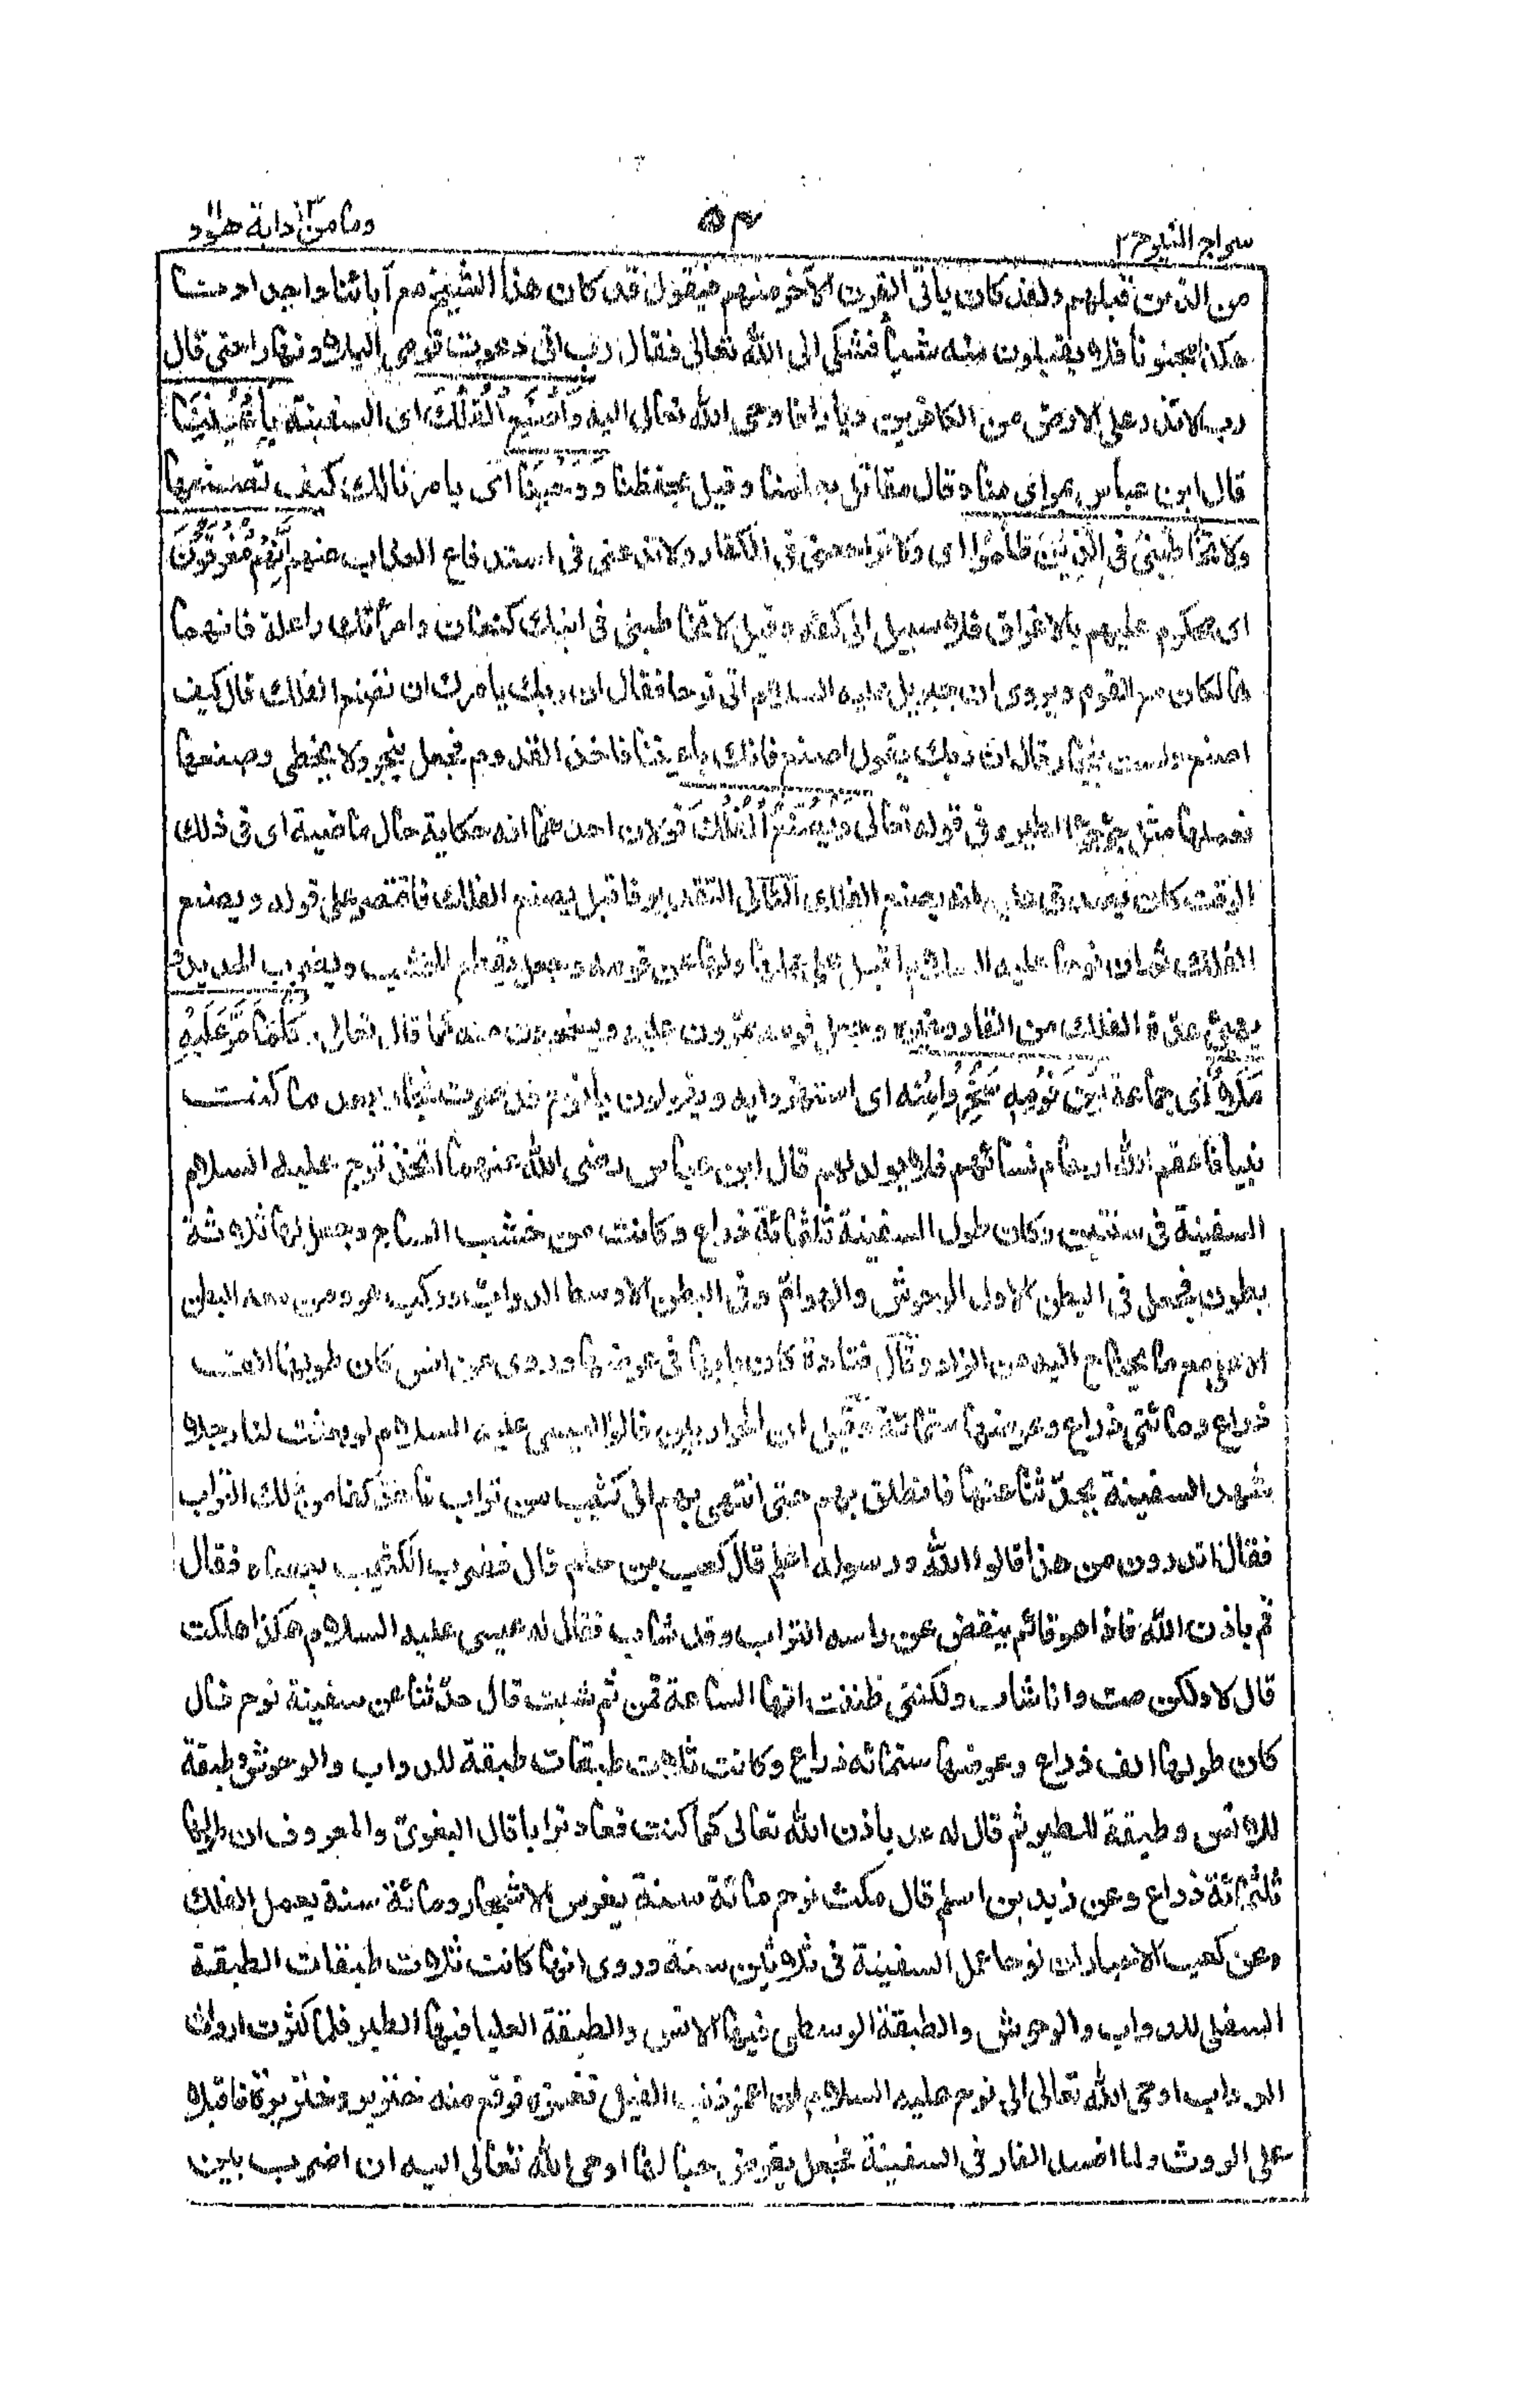 سراج المنير ج ٢
٥٤
وما من دابة ١٢ هود ١١
من الذين قبلهم ولقد كان يأتى القرن الآخر منهم فيقول قد كان هذا الشيخ مع آبائنا واجدادنا
هكذا مجنونا فلا يقبلون منه شيأ فشكى الى الله تعالى فقال رب انى دعوت قومى ليلا ونهارا حتى قال
رب لا تذر على الارض من الكافرين ديارا فاوحى الله تعالى اليه وَاصْنَعِ الْفُلْكَ اى السفينة بِأَعْيُنِنَا
قال ابن عباس بمرأى منا وقال مقاتل بعلمنا وقيل بحفظنا وَوَحْيِنَا اى بامرنا لك كيف تصنعها
وَلَا تُخَاطِبْنِي فِي الَّذِينَ ظَلَمُوا اى ولا تراجعنى فى الكفار ولا تدعنى فى استدفاع العذاب عنهم إِنَّهُمْ مُغْرَقُونَ
اى محكوم عليهم بالاغراق فلا سبيل الى كفه وقيل لا تخاطبنى فى ابنك كنعان وامرأتك راعلة فانهما
هالكان مع القوم ويروى ان جبريل عليه السلام اتى نوحا فقال ان ربك يامرك ان تصنع الفلك قال كيف
اصنع ولست بنجار قال ان ربك يقول اصنع فانك باعيننا فاخذ القدوم فجعل ينجر ولا يخطى وصنعها
فعملها مثل جؤجؤ الطير وفى قوله تعالى وَيَصْنَعُ الْفُلْكَ قولان احدهما انه حكاية حال ماضية اى فى ذلك
الوقت كان يصدق عليه انه يصنع الفلك الثانى التقدير فاقبل يصنع الفلك فاقتصر على قوله ويصنع
الفلك ثم ان نوحا عليه السلام اقبل على عملها ولها عن قومه وجعل يقطع الخشب ويضرب الحديد
يهيئ عدة الفلك من القار وغيره وجعل قومه يمرون عليه ويسخرون منه كما قال تعالى وَكُلَّمَا مَرَّ عَلَيْهِ
مَلَأٌ اى جماعة مِنْ قَوْمِهِ سَخِرُوا مِنْهُ اى استهزؤا به ويقولون يا نوح قد صرت نجارا بعد ما كنت
نبيا فاعقم الله ارحام نسائهم فلا يولد لهم قال ابن عباس رضى الله عنهما اتخذ نوح عليه السلام
السفينة فى سنتين وكان طول السفينة ثلثمائة ذراع وكانت من خشب الساج وجعل لها ثلاثة
بطون فجعل فى البطن الاول الوحوش والهوام وفى البطن الاوسط الدواب وركب هو ومن معه البطن
الاعلى مع ما يحتاج اليه من الزاد وقال قتادة كان بابها فى عرضها وروى عن انس كان طولها الف
ذراع ومائتى ذراع وعرضها ستمائة وقيل ان الحواريين قالوا لعيسى عليه السلام لو بعثت لنا رجلا
شهد السفينة يحدثنا عنها فانطلق بهم حتى انتهى بهم الى كثيب من تراب فاخذ كفا من ذلك التراب
فقال اتدرون من هذا قالوا الله ورسوله اعلم قال كعب بن حام قال فضرب الكثيب بعصاه فقال
قم باذن الله فاذا هو قائم ينفض عن راسه التراب وقد شاب فقال له عيسى عليه السلام هكذا هلكت
قال لا ولكن مت وانا شاب ولكننى ظننت انها الساعة فمن ثم شبت قال حدثنا عن سفينة نوح قال
كان طولها الف ذراع وعرضها ستمائه ذراع وكانت ثلاث طبقات طبقة للدواب والوحوش وطبقة
للانس وطبقة للطير ثم قال له عد باذن الله تعالى كما كنت فعاد ترابا قال البغوى والمعروف ان طولها
ثلثمائة ذراع وعن زيد بن اسلم قال مكث نوح مائة سنة يغرس الاشجار ومائة سنة يعمل الفلك
وعن كعب الاحبار ان نوحا عمل السفينة فى ثلاثين سنة وروى انها كانت ثلاث طبقات الطبقة
السفلى للدواب والوحوش والطبقة الوسطى فيها الانس والطبقة العليا فيها الطير فلما كثرت ارواث
الدواب اوحى الله تعالى الى نوح عليه السلام ان اغمز ذنب الفيل فغمزه فوقع منه خنزير وخنزيرة فاقبلا
على الروث ولما افسد الفار فى السفينة فجعل يقرض حبالها اوحى الله تعالى اليه ان اضرب بين